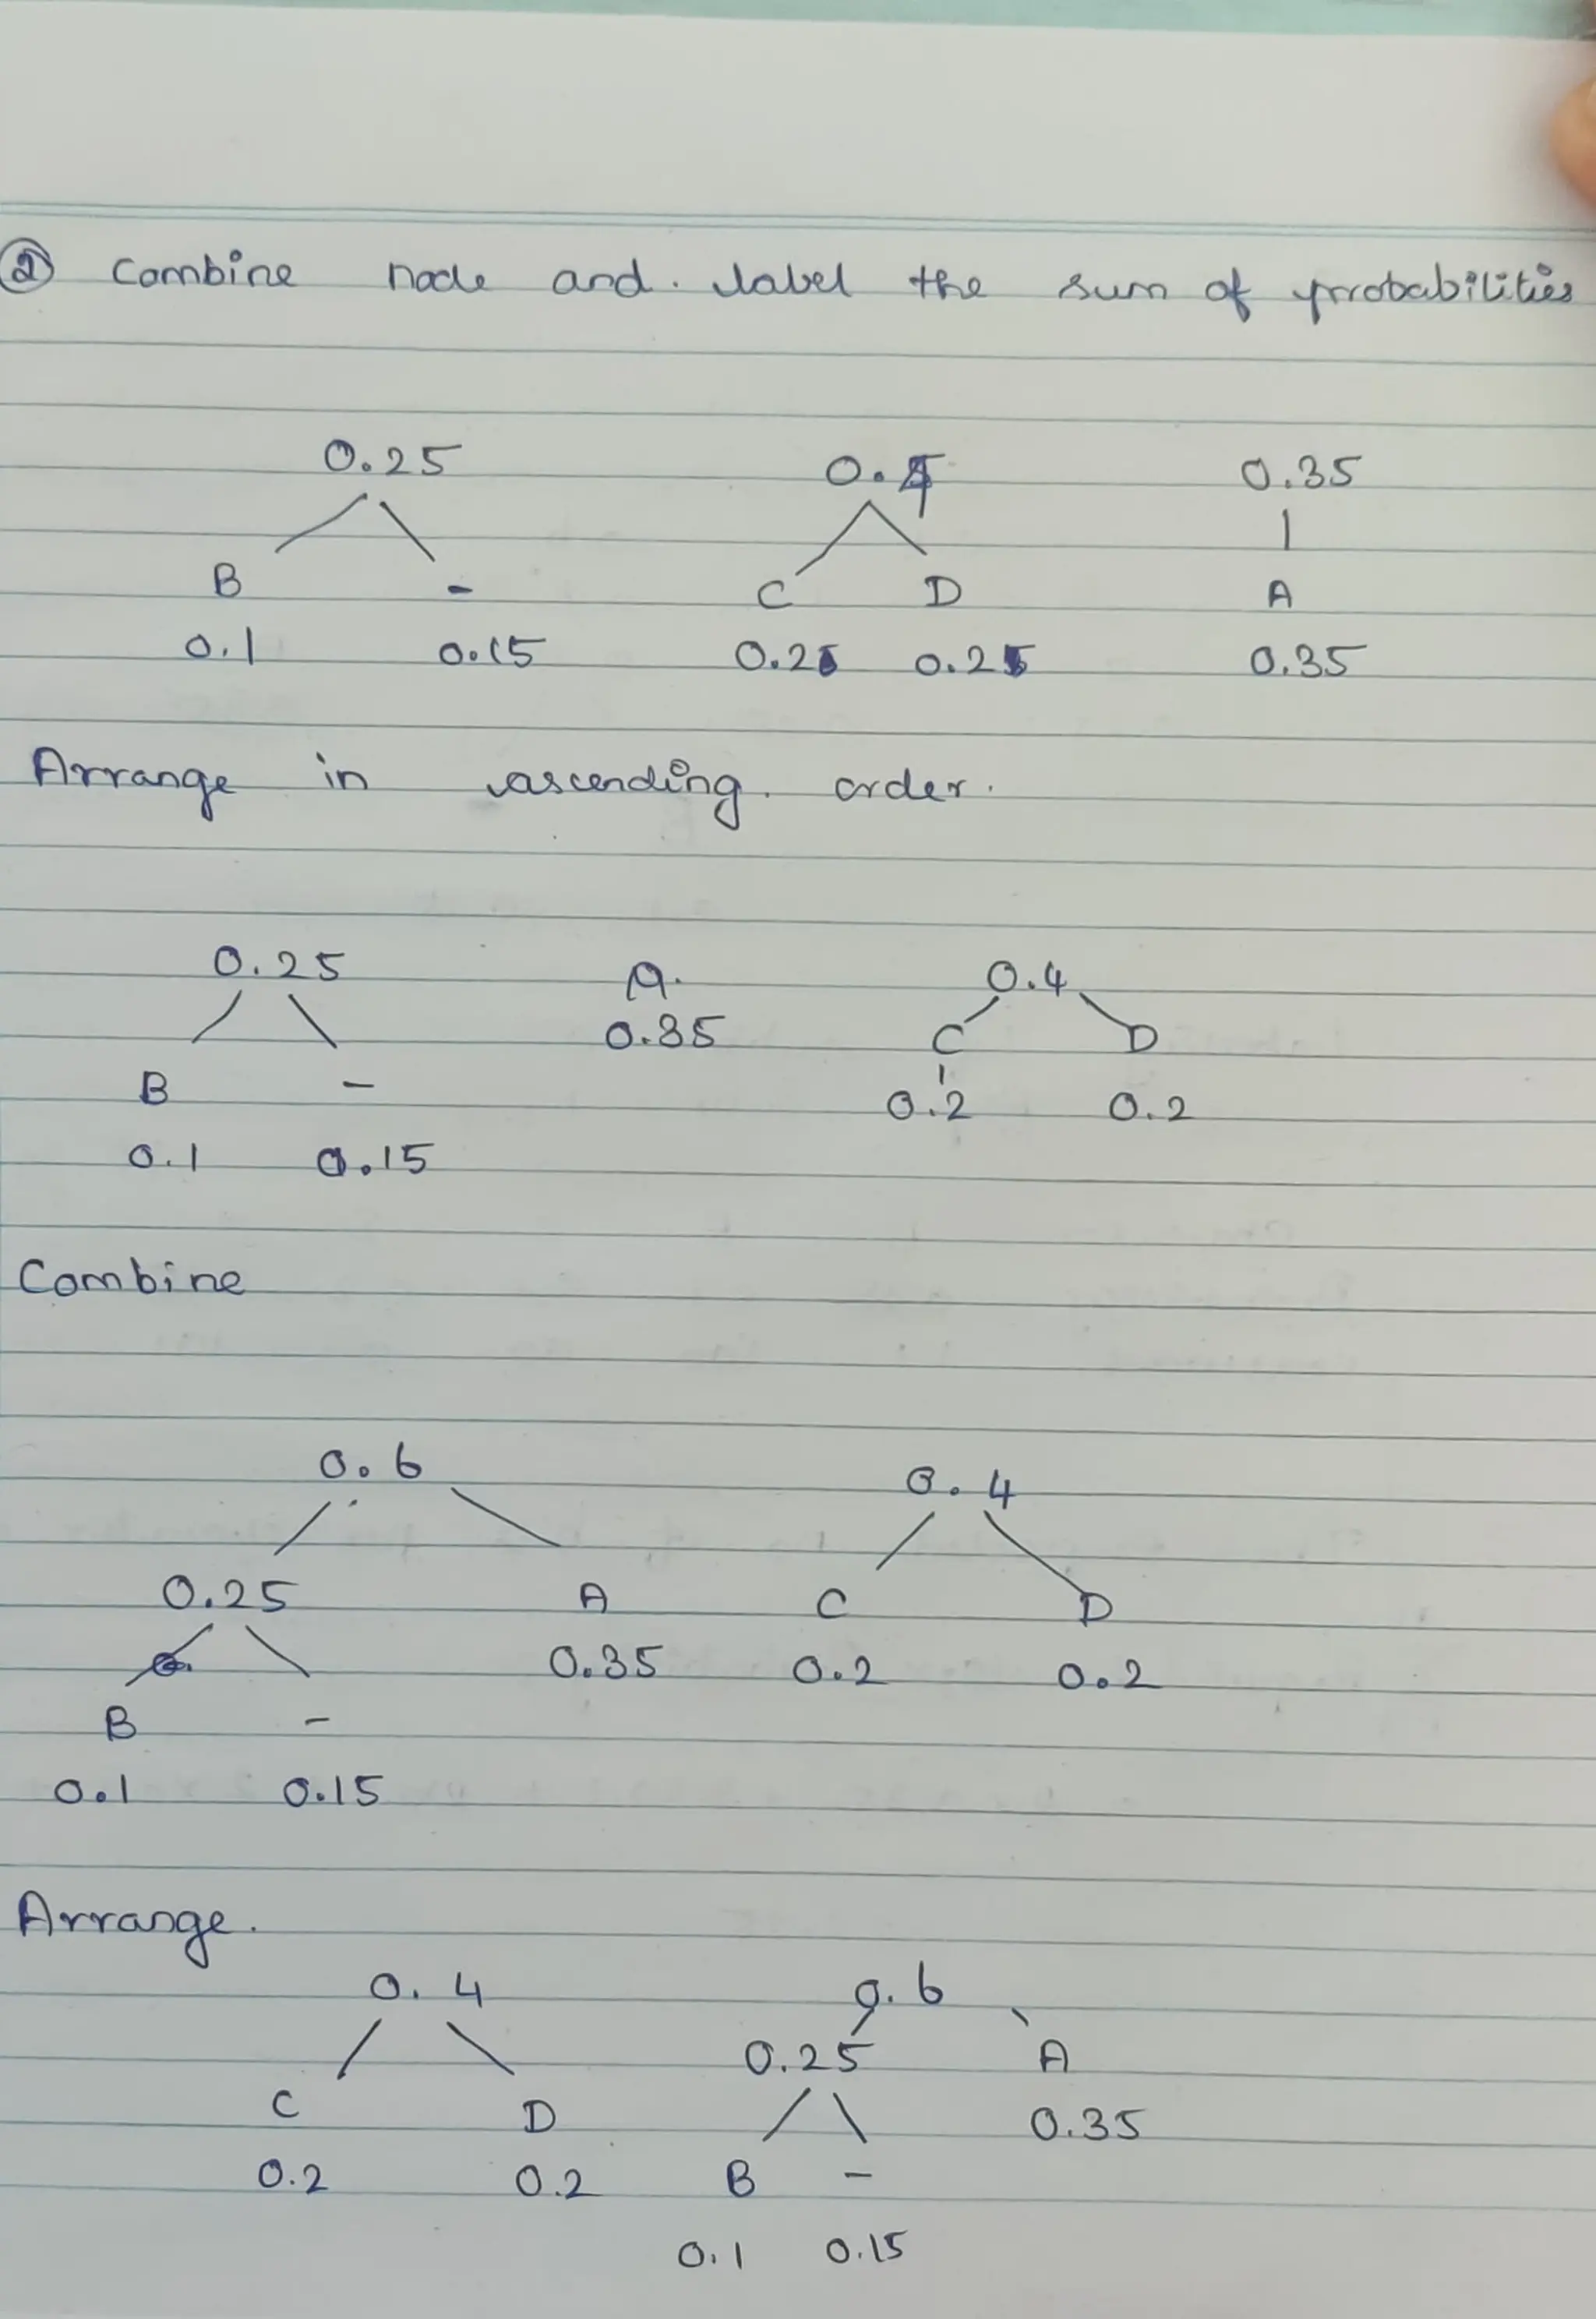 ② Combine node and. label the sum of probabilities
0.25 0.4 0.35
B - C D A
0.1 0.15 0.2 0.2 0.35
Arrange in ascending. order.
0.25 A. 0.4
0.35 C D
B - 0.2 0.2
0.1 0.15
Combine
0.6 0.4
0.25 A C D
0.35 0.2 0.2
B -
0.1 0.15
Arrange.
0.4 0.6
0.25 A
C D 0.35
0.2 0.2 B -
0.1 0.15